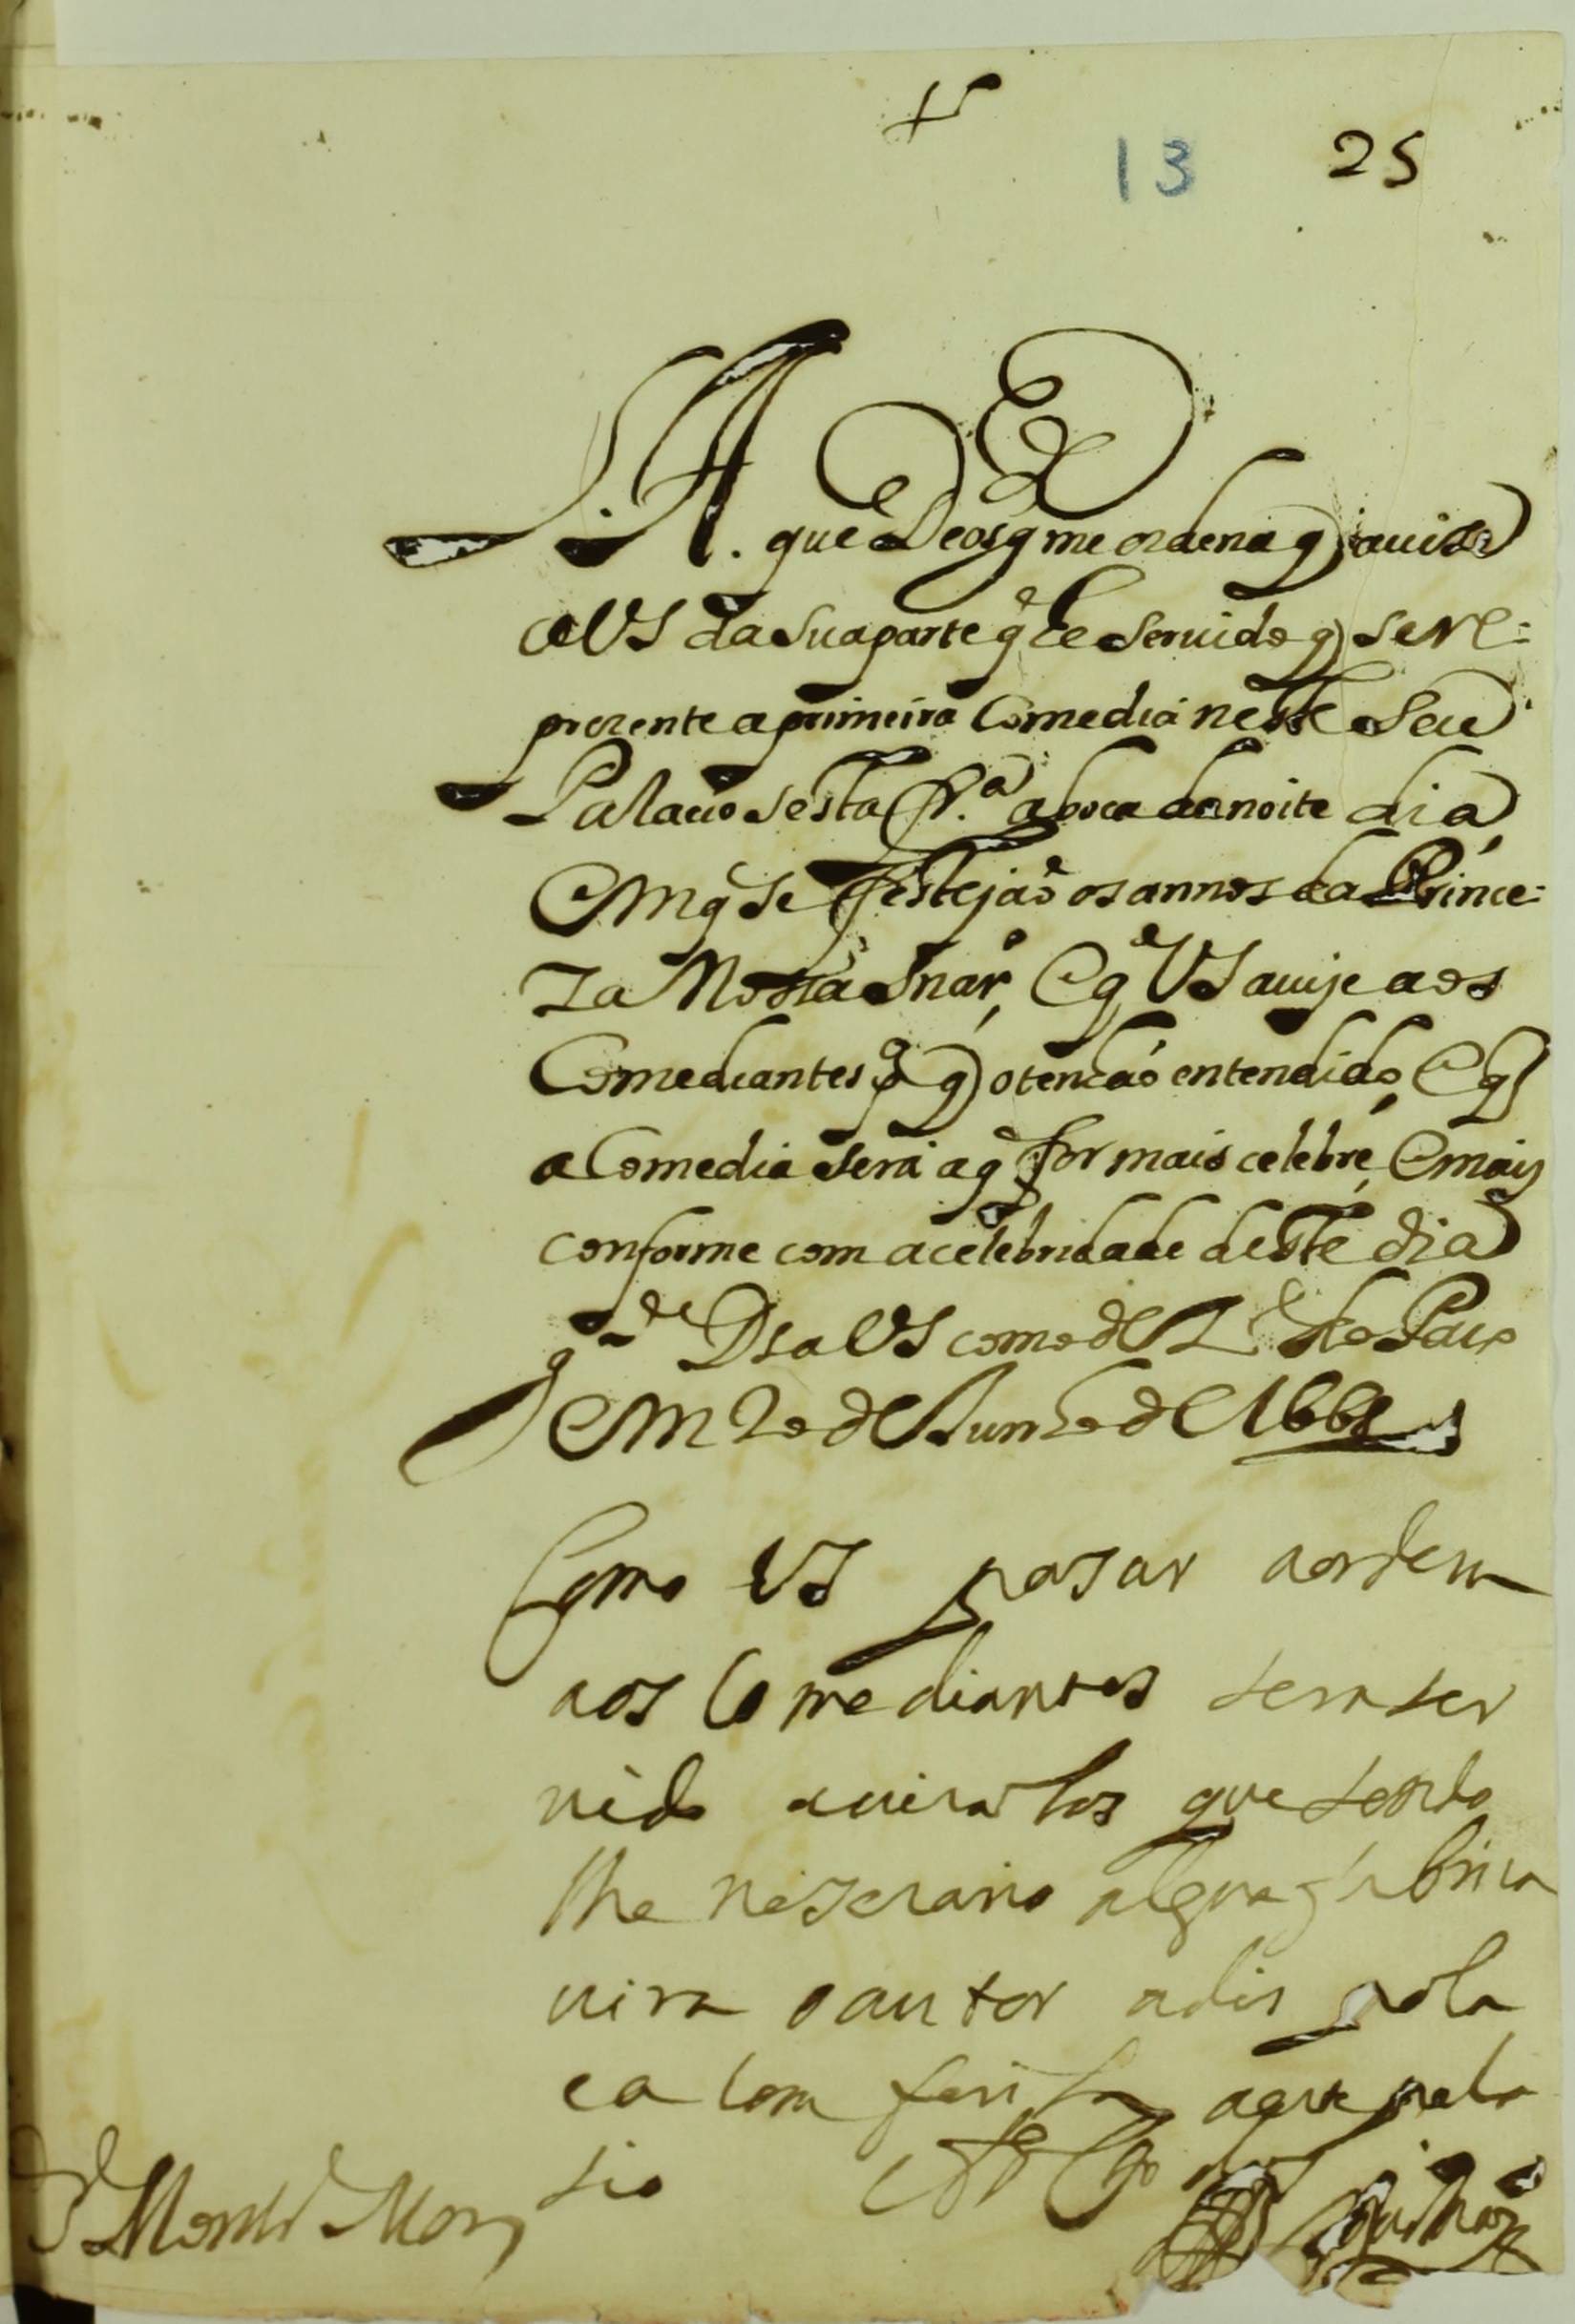 13 25
S. A. que Deos g me ordena q avise
a VS da sua parte q he servido q se re:
prezente a primeira Comedia neste seu
Palacio sesta fr.ª a boca da noite dia
em q se festejaõ os annos da Prince:
za Nossa Snar̃, e q VS avise aos
Comediantes p q o tenhaõ entendido, e q
a Comedia será a q for mais celebre, e mais
conforme com a celebridade deste dia
g.de Ds a VS como dez.º do Paço
em 2 de Junho de 166
Como VS pasar a ordem
aos Comediantes sera ser
uido auizalos que sendo
lhe nesesario algũa fabrica
uira o autor a dis pola
ea com ferila aqui pela
sio
Sr Monteiro Mor